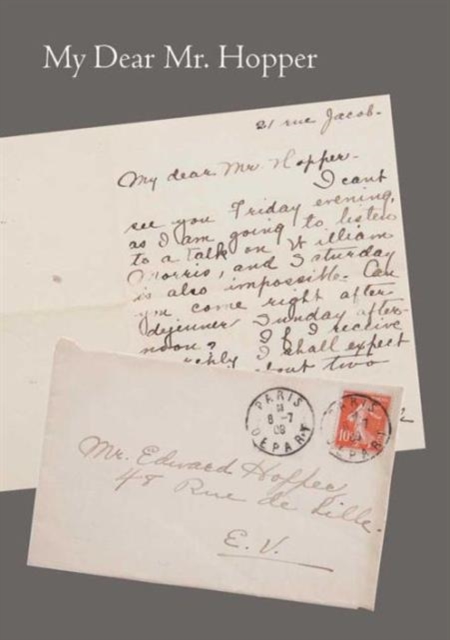 My Dear Mr. Hopper
21 rue Jacob.
My dear Mr. Hopper.
I cant
see you Friday evening,
as I am going to listen
to a talk on William
Morris, and Saturday
is also impossible. Can
you come right after
dejeuner Sunday after-
noon? If I receive
I shall expect
about two
PARIS
8-7
09
DEPART
PARIS
DEPART
10
Mr. Edward Hopper,
48 Rue de Lille.
E. V.